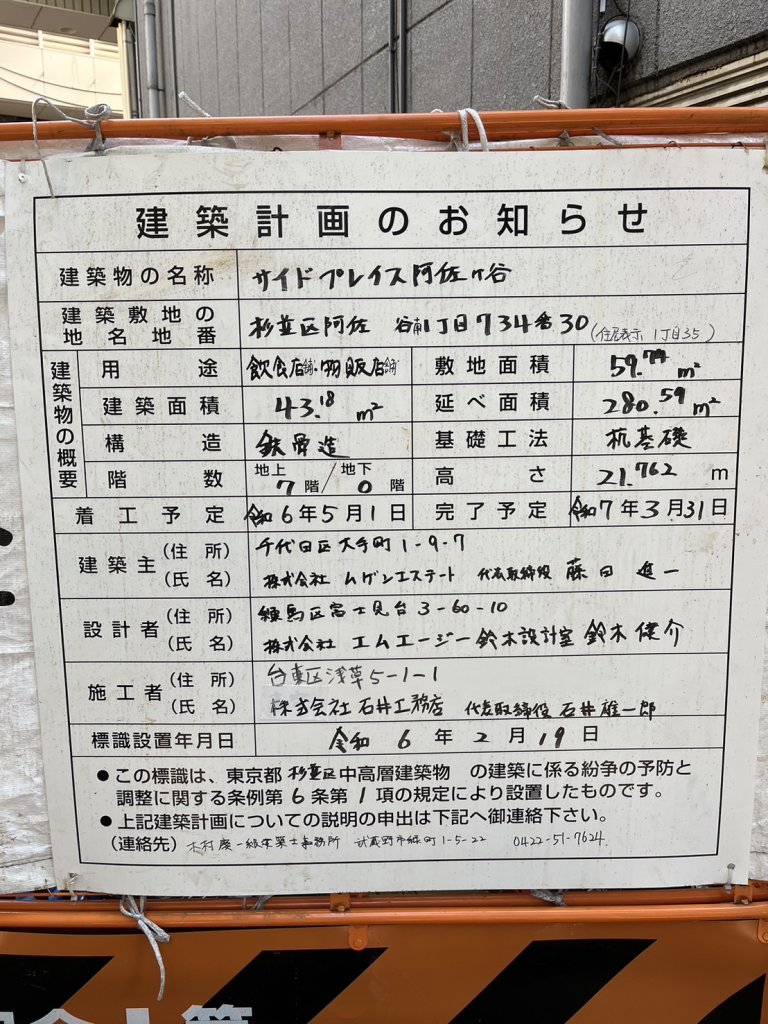 建築計画のお知らせ
建築物の名称 サイドプレイス阿佐ヶ谷
建築敷地の地名地番 杉並区阿佐谷南1丁目734番30(住居表示 1丁目35)
建築物の概要
用途 飲食店舗・物販店舗 敷地面積 59.77㎡
建築面積 43.18㎡ 延べ面積 280.59㎡
構造 鉄骨造 基礎工法 杭基礎
階数 地上7階/地下0階 高さ 21.762m
着工予定 令和6年5月1日 完了予定 令和7年3月31日
建築主(住所) 千代田区大手町1-9-7
(氏名) 株式会社 ムゲンエステート 代表取締役 藤田 進一
設計者(住所) 練馬区富士見台3-60-10
(氏名) 株式会社 エムエージー鈴木設計室 鈴木健介
施工者(住所) 台東区浅草5-1-1
(氏名) 株式会社石井工務店 代表取締役 石井雄一郎
標識設置年月日 令和6年2月19日
●この標識は、東京都 杉並区中高層建築物 の建築に係る紛争の予防と
調整に関する条例第6条第1項の規定により設置したものです。
●上記建築計画についての説明の申出は下記へ御連絡下さい。
(連絡先) 木村慶一級建築士事務所 武蔵野市緑町1-5-22 0422-51-7624